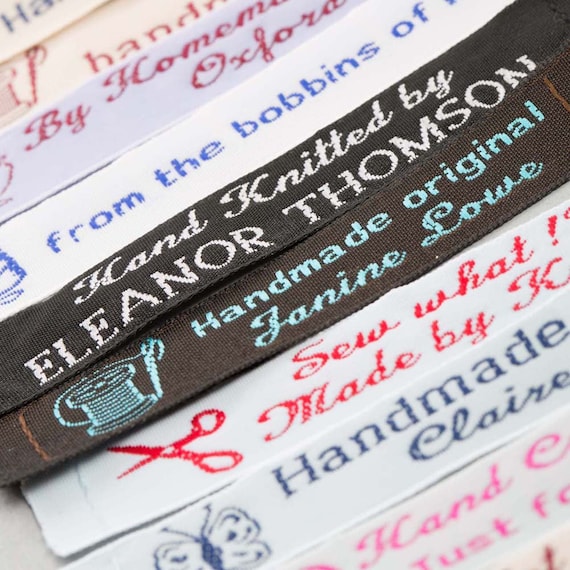 Hand
handm
By Homema
Oxford
from the bobbins of
Hand Knitted by
ELEANOR THOMSON
Handmade original
Janine Lowe
Sew what !?
Made by K
Handmade
Claire
Hand C
Just fo